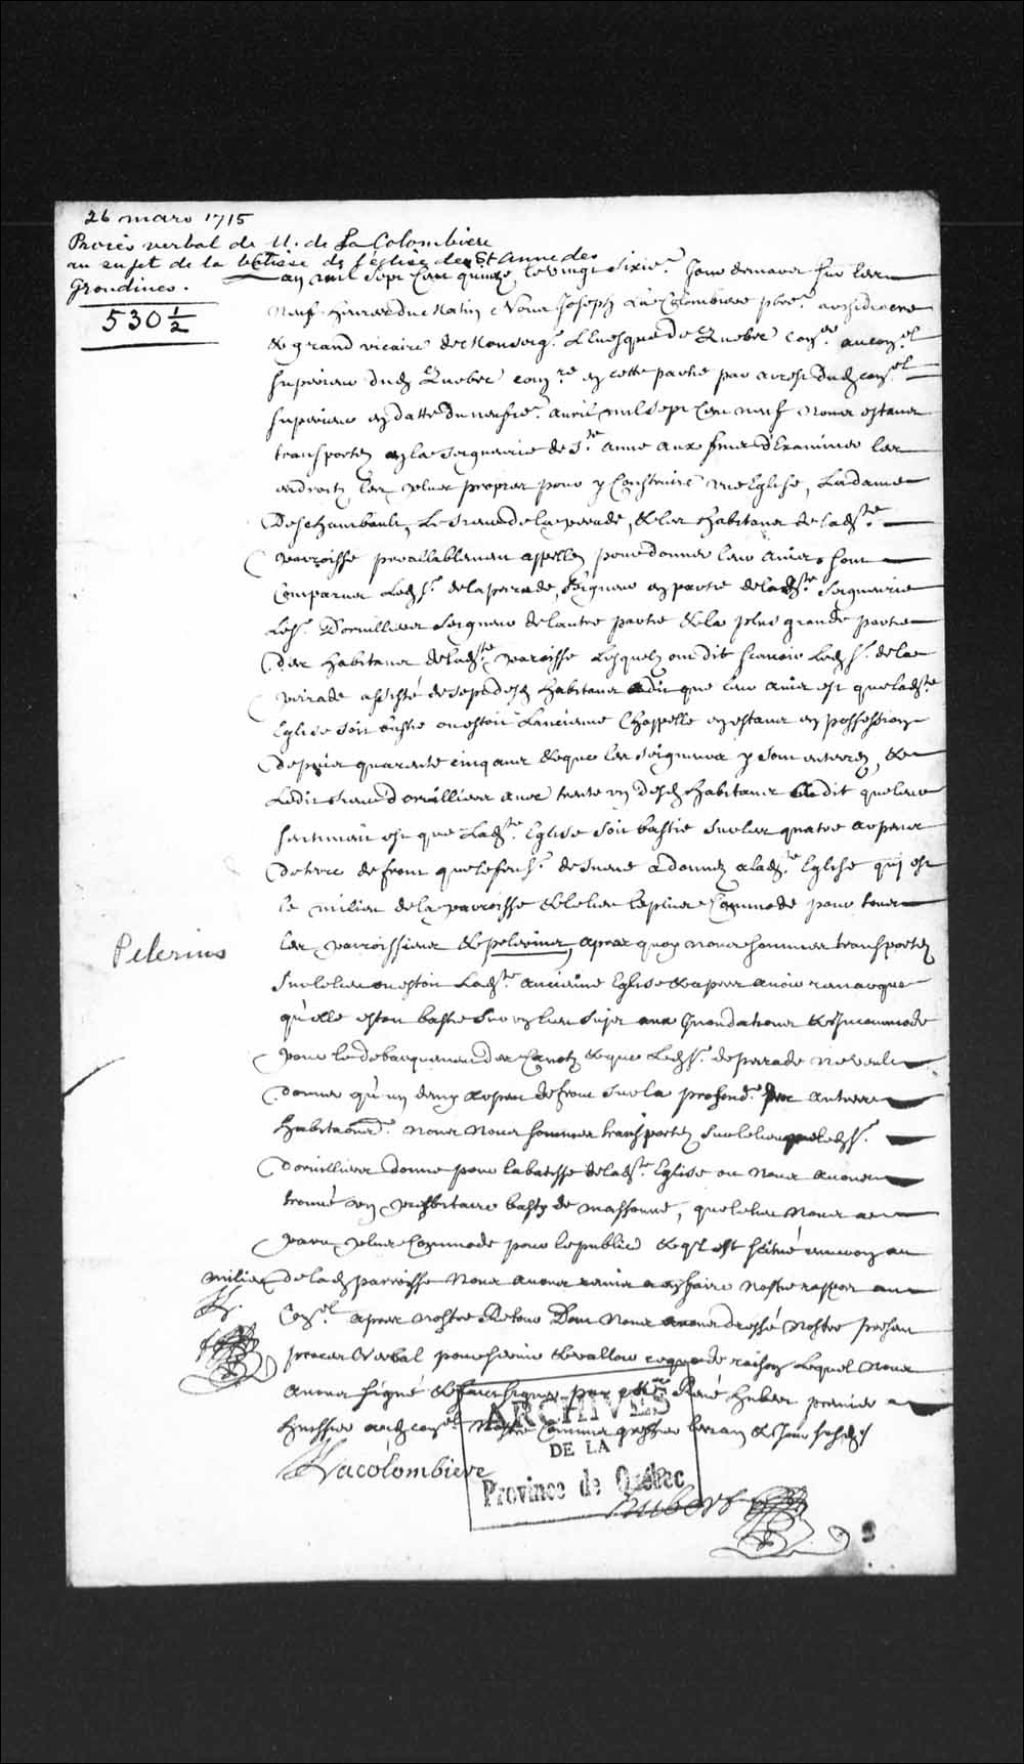 26 mars 1715
Procès verbal de M. de La Colombiere
au sujet de la batisse de l'église de Ste Anne des
Grondines.
530 1/2
an mil sept Cent quinze, le vingt sixie. Jour de mars sur les
neuf heures du Matin Nous Joseph La Colombiere pbre. archidiacre
& grand vicaire de Monseigr. L'Evesque de Quebec conser. au conel
superieur dud Quebec comre en cette partie par arrest dud conel
superieur en datte du neufie. avril mil sept Cent neuf nous estant
transportez en la seigneurie de Ste anne aux fins d'Examiner les
endroits les plus propres pour y Construire une Eglise, La dame
Deschambault, Le sieur de la perade, & les habitans de ladte
parroisse preallablement appellez pour donner leur avis, sont
Comparus Led Sr. de la perade, seigneur en partie de ladte Seigneurie
Led Sr. Dorvilliers seigneur de lautre partie & la plus grande partie
des habitans de ladte paroisse lesquels ont dit scavoir Led Sr. de la
perade assisté de sept desd habitans dit que leur avis est que ladte
Eglise soit bastie ou estoit Lancienne Chappelle en estant en possession
depuis quarente cinq ans & que les seigneurs y sont enterrez, &
Ledit sieur dorvilliers avec trente un desd habitans dit que leur
sentiment est que Ladte Eglise soit bastie sur les quatre arpens
de terre de front que le feu Sr. de sueve a donnez a ladte Eglise qui est
le milieu de la parroisse & le lieu le plus Commode pour tous
les parroissiens & pelerins, apres quoy nous sommes transportez
Pelerins
sur le lieu ou estoit Ladte ancienne Eglise & apres avoir remarqué
qu'elle estoit bastie sur un lieu sujet aux Inondations & Incommode
pour le debarquement des Canots & que Led Sr. de perade ne veut
donner qu'un demy arpent de front sur la profondr. des autres
habitaons. nous nous sommes transportez sur le lieu que led Sr.
dorvilliers donne pour la batisse de ladte Eglise ou Nous avons
trouvé un presbitaire basty de massonne, que le lieu Nous a
paru plus Commode pour le public & qu'il est scitué environ au
milieu de lad parroisse Nous avons remis a en faire nostre raport au
Conel apres nostre Retour Dont Nous avons dressé Nostre present
procez Verbal pour servir & valloir ce que de raison Lequel Nous
avons signé & fait signer par Me René Hubert premier
huissier aud conel Nostre Commis greffier les an & Jour susd
Lacolombiere
hubert
ARCHIVES
DE LA
Province de Québec